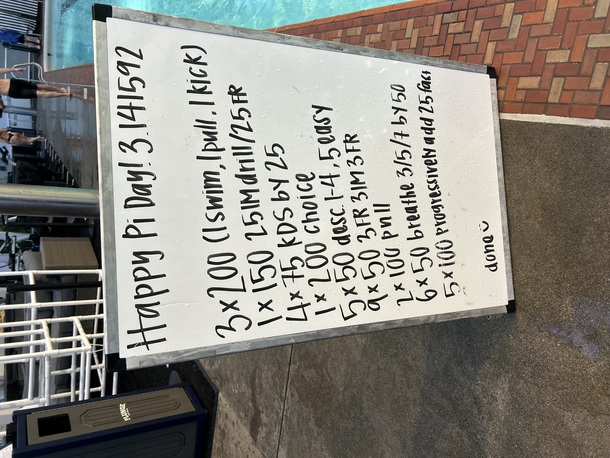 Happy Pi Day! 3.141592
3x200 (1 swim, 1 pull, 1 kick)
1x150 25 IM drill/25 FR
4x75 KDS by 25
1x200 choice
5x50 desc. 1-4, 5 easy
9x50 3FR 3IM 3FR
2x100 pull
6x50 breathe 3/5/7 by 50
5x100 progressively add 25 fast
done